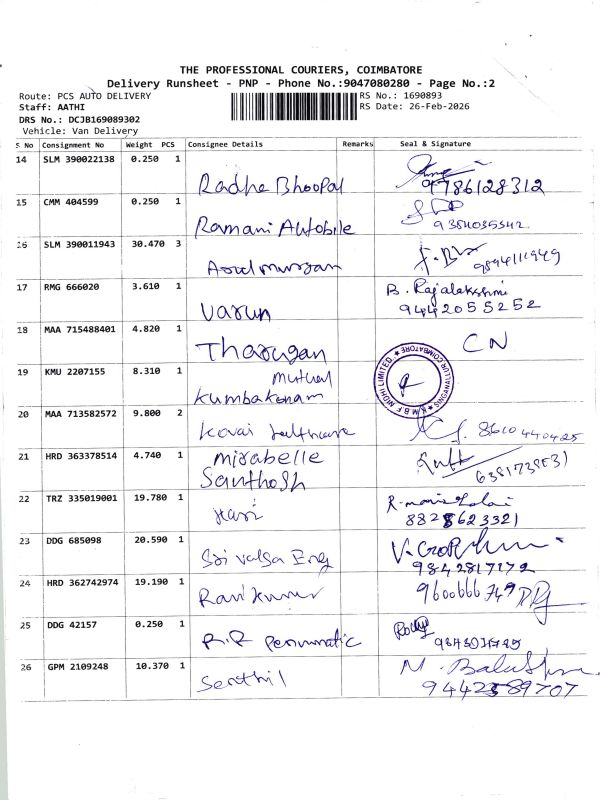 THE PROFESSIONAL COURIERS, COIMBATORE
Delivery Runsheet - PNP - Phone No.:9047080280 - Page No.:2
Route: PCS AUTO DELIVERY
RS No.: 1690893
Staff: AATHI
RS Date: 26-Feb-2026
DRS No.: DCJB169089302
Vehicle: Van Delivery
S No Consignment No Weight PCS Consignee Details Remarks Seal & Signature
14 SLM 390022138 0.250 1 Radhe Bhoopal 9786128312
15 CMM 404599 0.250 1 Ramani Autobile
16 SLM 390011943 30.470 3
17 RMG 666020 3.610 1 Varun B. Rajalakshmi
9442055252
18 MAA 715488401 4.820 1 Tharugan CN
19 KMU 2207155 8.310 1 mutual
Kumbakonam
K.M.B.F NIDHI LIMITED SINGANALLUR COIMBATORE
20 MAA 713582572 9.800 2 Kovai 8610440425
21 HRD 363378514 4.740 1 mirabelle
Santhosh
22 TRZ 335019001 19.780 1 Hari
23 DDG 685098 20.590 1 Sri Valsa Eng
9842817172
24 HRD 362742974 19.190 1 Ravi Kumar 9600666749
25 DDG 42157 0.250 1 R.R
26 GPM 2109248 10.370 1 Senthil